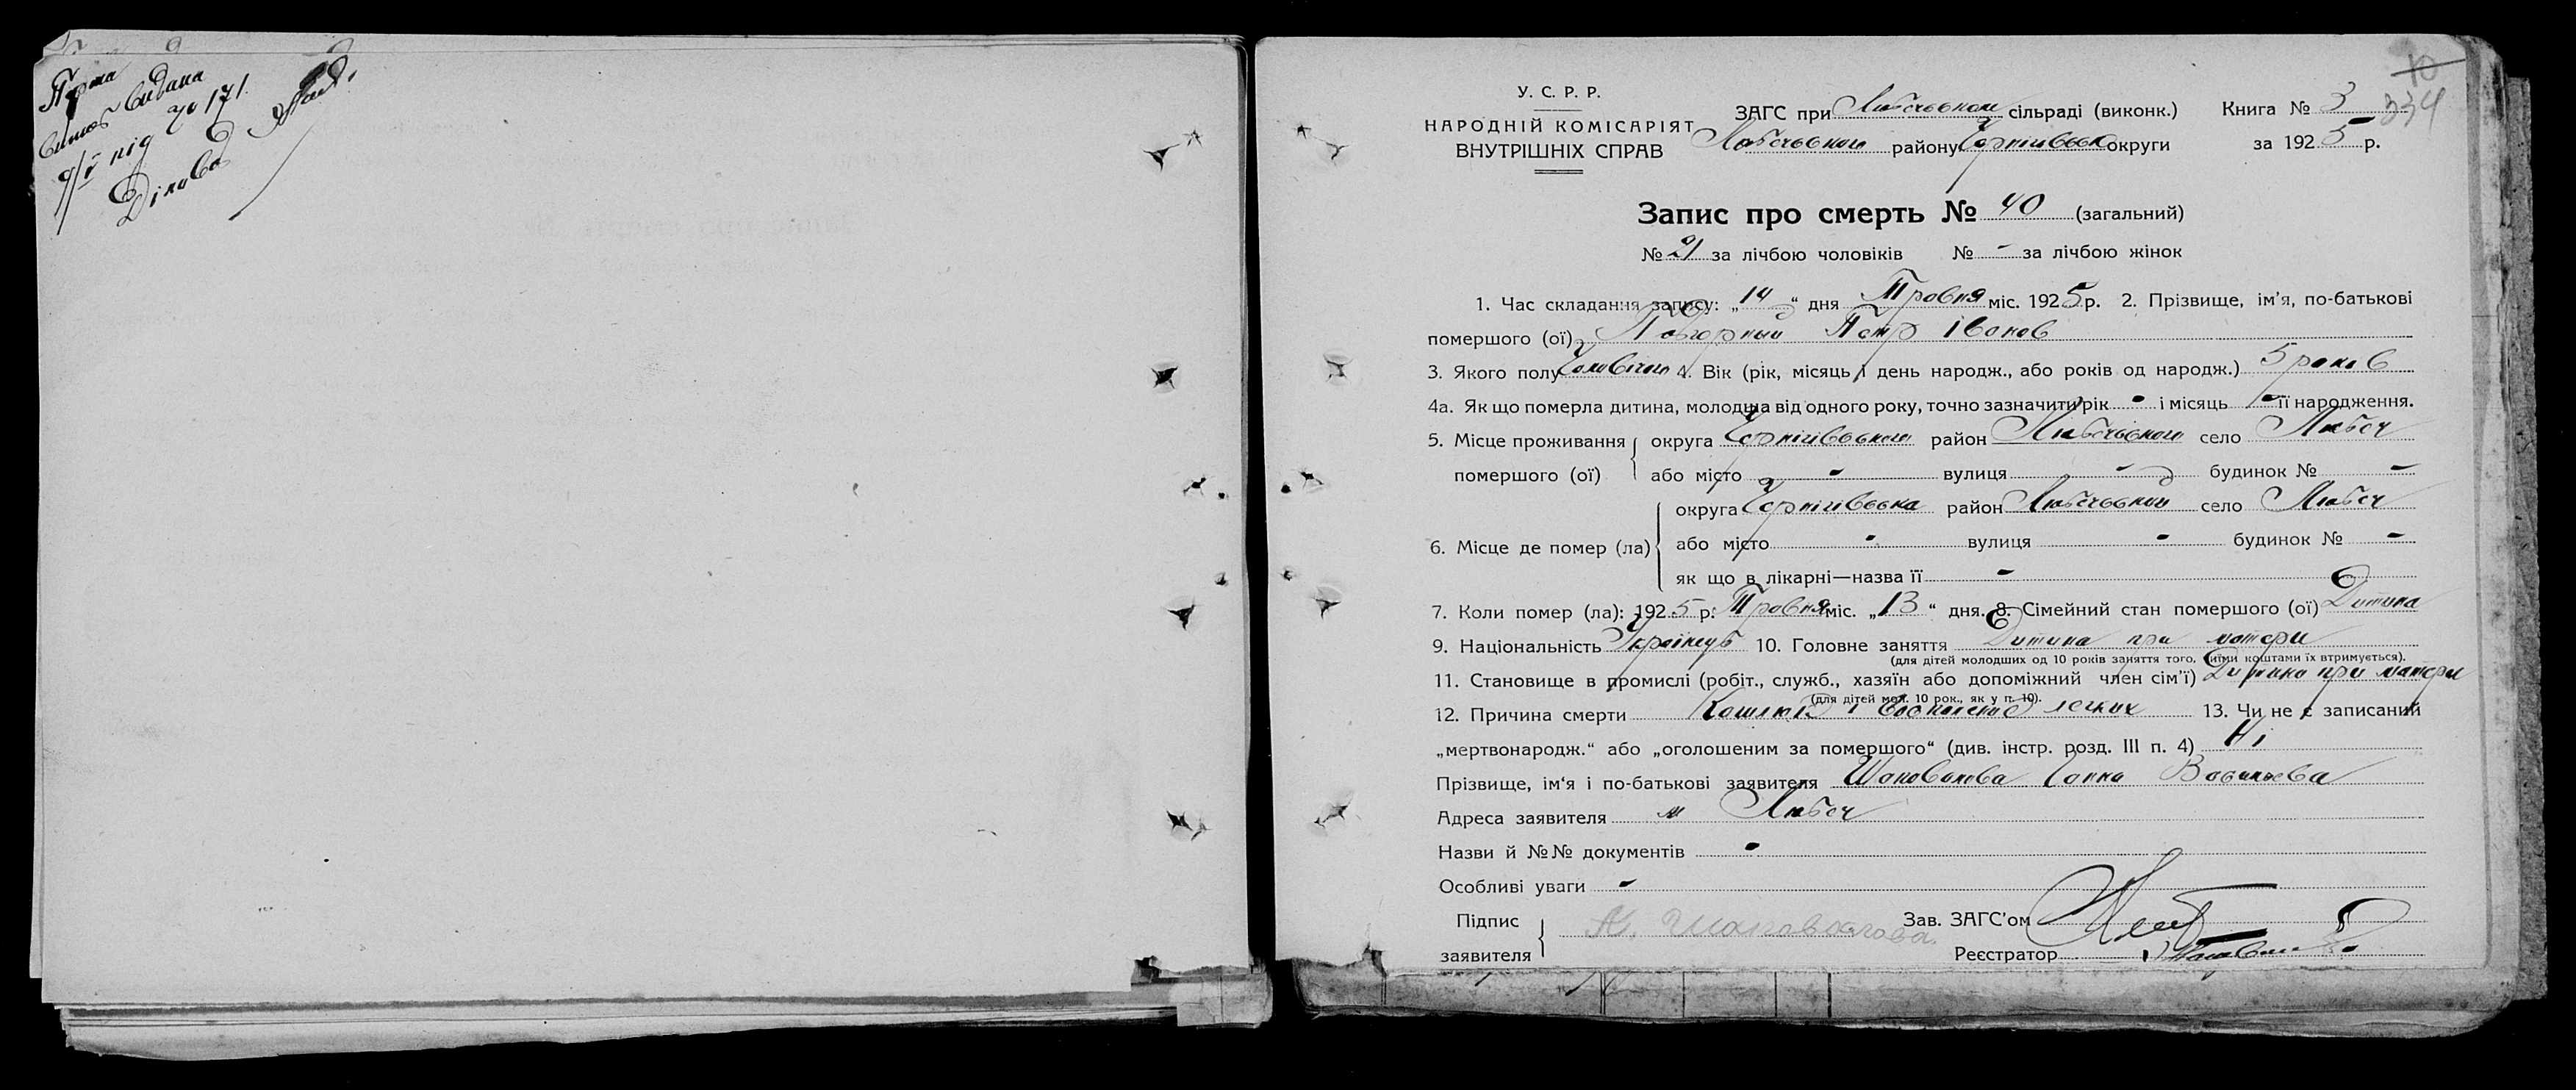 Перша
видана
під № 171.
Діловод
10
334
У. С. Р. Р.
НАРОДНІЙ КОМІСАРІЯТ
ВНУТРІШНІХ СПРАВ
ЗАГС при Любечському сільраді (виконк.) Книга № 3
Любечського району Чернігівськ округи за 1925 р.
Запис про смерть № 40 (загальний)
№ 21 за лічбою чоловіків № - за лічбою жінок
1. Час складання запису: „14“ дня Травня міс. 1925 р. 2. Прізвище, ім'я, по-батькові
помершого (ої) Петр Іванов
3. Якого полу Чоловічого 4. Вік (рік, місяць і день народж., або років од народж.) 5 років
4а. Як що померла дитина, молодша від одного року, точно зазначити рік - і місяць - її народження.
5. Місце проживання округа Чернігівського район Любечського село Любеч
помершого (ої) або місто - вулиця - будинок № -
6. Місце де помер (ла) округа Чернігівська район Любечський село Любеч
або місто - вулиця - будинок № -
як що в лікарні—назва її -
7. Коли помер (ла): 1925 р. Травня міс. „13“ дня. 8. Сімейний стан помершого (ої) Дитина
9. Національність Українець 10. Головне заняття Дитина при матери
(для дітей молодших од 10 років заняття того, чиїми коштами їх втримується).
11. Становище в промислі (робіт., служб., хазяїн або допоміжний член сім'ї) Дитина при матери
(для дітей мол. 10 рок., як у п. 10).
12. Причина смерти Кошлюк і легких 13. Чи не є записаний
„мертвонародж.“ або „оголошеним за помершого“ (див. інстр. розд. III п. 4) Ні
Прізвище, ім'я і по-батькові заявителя Шаповалова Ганна Васильева
Адреса заявителя м Любеч
Назви й №№ документів -
Особливі уваги -
Підпис
заявителя Шаповалова
Зав. ЗАГС'ом
Реєстратор